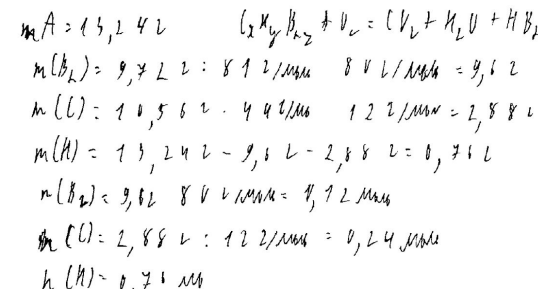 mA = 13,24г CxHyBrz + O₂ = CO₂ + H₂O + HBr
m(Br) = 9,72г : 81г/моль 80г/моль = 9,6г
m(C) = 10,56г . 44г/мо 12г/моль = 2,88г
m(H) = 13,24г - 9,6г - 2,88г = 0,76г
n(Br) = 9,6г 80г/моль = 0,12моль
n(C) = 2,88г : 12г/моль = 0,24моль
n(H) = 0,76мо